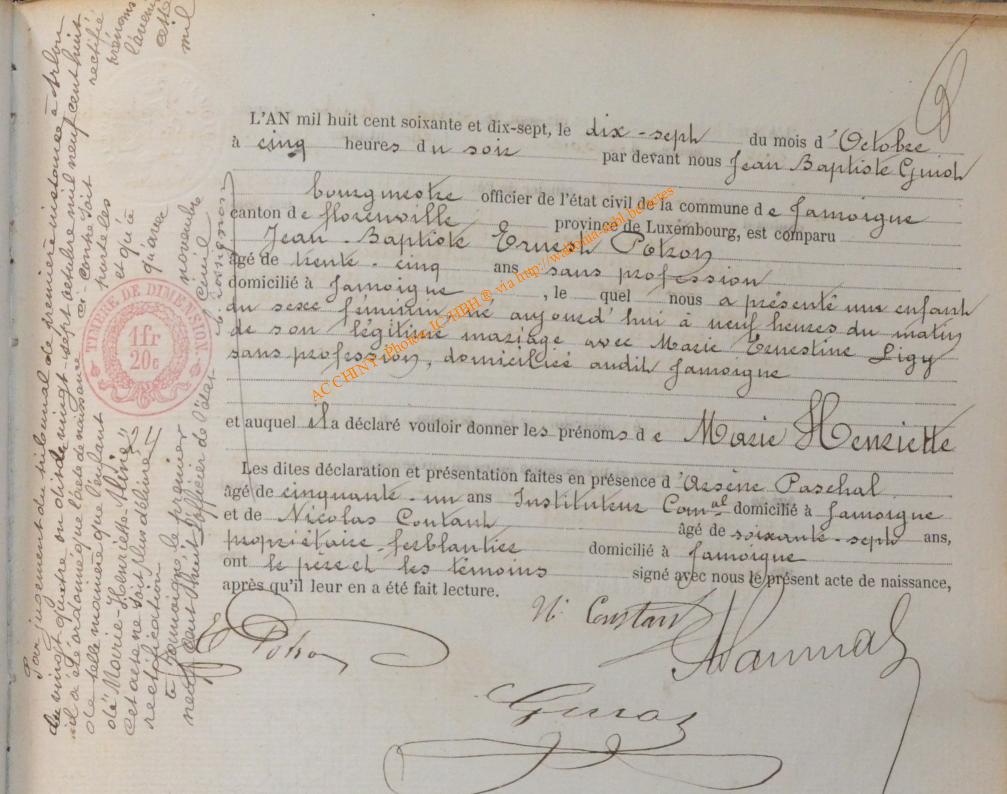 L'AN mil huit cent soixante et dix-sept, le dix-sept du mois d'Octobre
à cinq heures du soir par devant nous Jean Baptiste
bourgmestre officier de l'état civil de la commune de Jamoigne
canton de florenville province de Luxembourg, est comparu
Jean-Baptiste Ernest Potron
âgé de trente-cinq ans sans profession
domicilié à Jamoigne, le quel nous a présenté une enfant
du sexe féminin né aujourd'hui à neuf heures du matin
de son légitime mariage avec Marie Ernestine Ligy
sans profession, domiciliée audit Jamoigne
et auquel il a déclaré vouloir donner les prénoms de Marie Henriette
Les dites déclaration et présentation faites en présence d'Arsène Paschal
âgé de cinquante-un ans Instituteur Com.al domicilié à Jamoigne
et de Nicolas âgé de soixante-seph ans,
propriétaire-ferblantier domicilié à Jamoigne
ont le père et les témoins signé avec nous le présent acte de naissance,
après qu'il leur en a été fait lecture.
E Potron
Par jugement du tribunal de première instance à Arlon
du vingt quatre ou vingt-sept octobre mil neuf cent huit
il a été ordonné que l'acte de naissance ci contre soit rectifié
de telle manière que l'enfant porte les prénoms
de "Marie-Henriette-Aline" et qu'à l'avenir
cet acte ne soit plus délivré qu'avec cette
rectification
Jamoigne le premier novembre mil
neuf cent huit l'officier de l'état civil
TIMBRE DE DIMENSION.
1fr
20c
AC CHINY - Photos IC/HBH ® via http://wallonia-asbl.be/actes